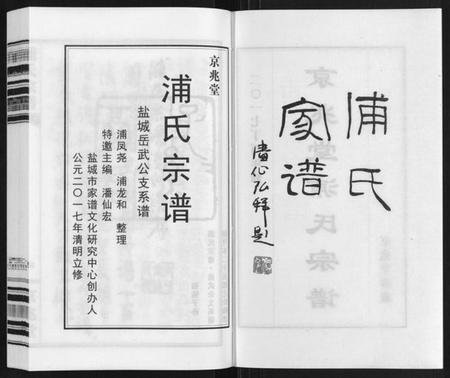 浦氏
家谱
潘心弘拜题
京兆堂
浦氏宗谱
盐城岳武公支系谱
浦凤尧 浦龙和 整理
特邀主编 潘仙宏
盐城市家谱文化研究中心创办人
公元二〇一七年清明立修